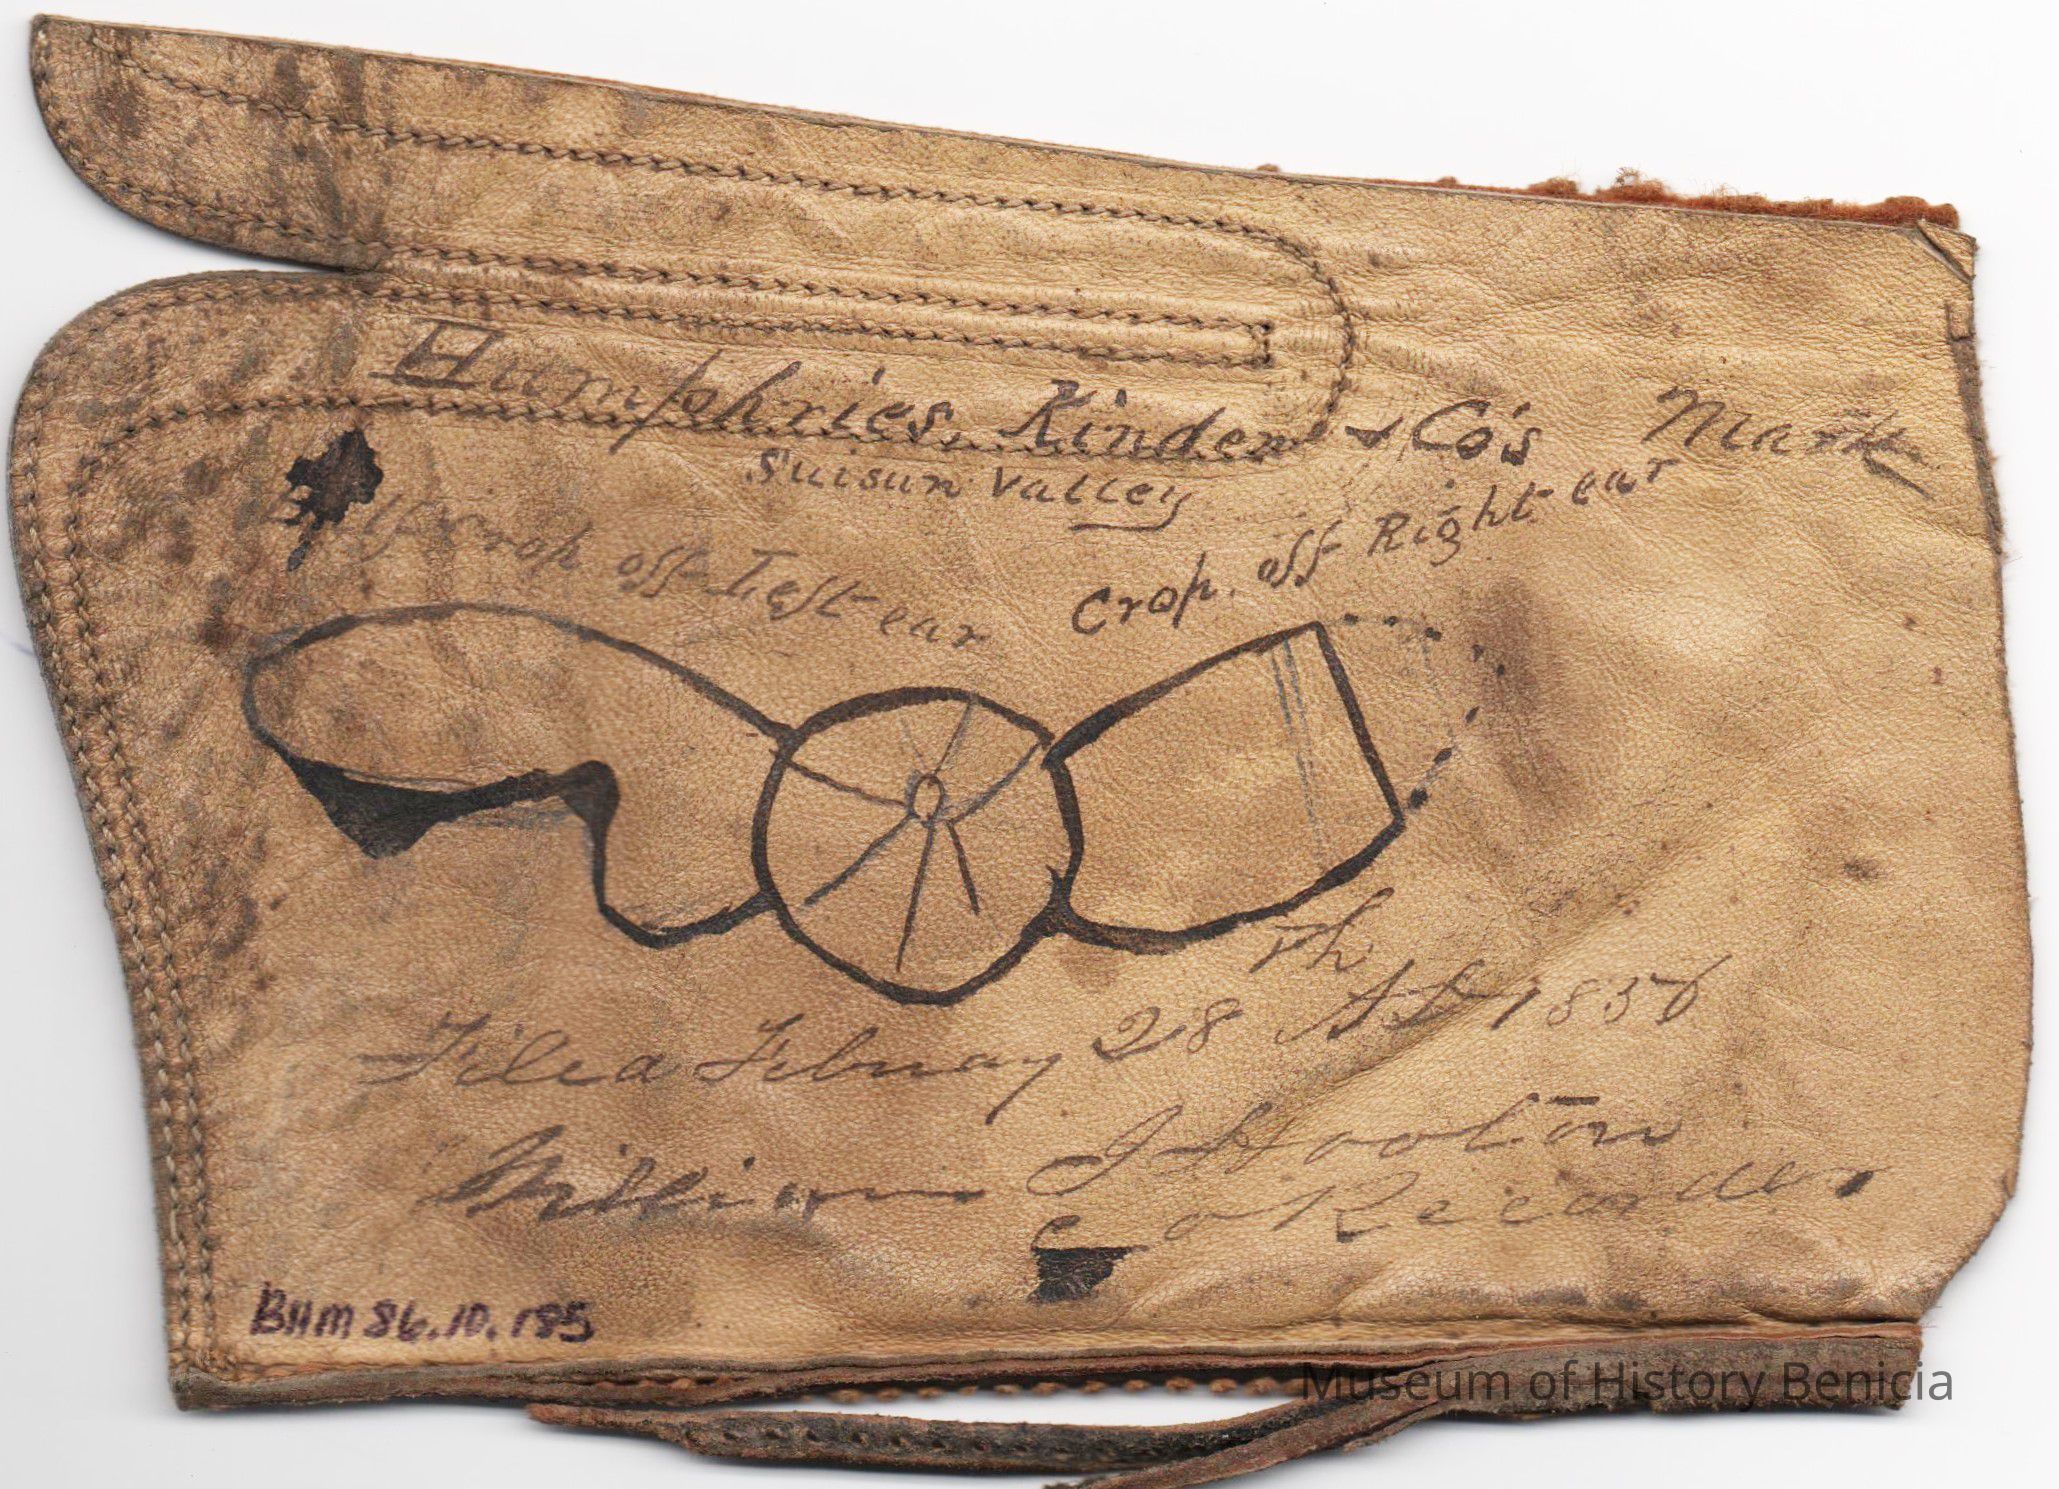 Humphries, Kinder & Co's Mark
Suisun Valley
crop off Left ear
Crop. off Right ear
Filed Febuay 28th AD 1856
William J Hooton
Co Recorder
BHM 86.10.185
Museum of History Benicia